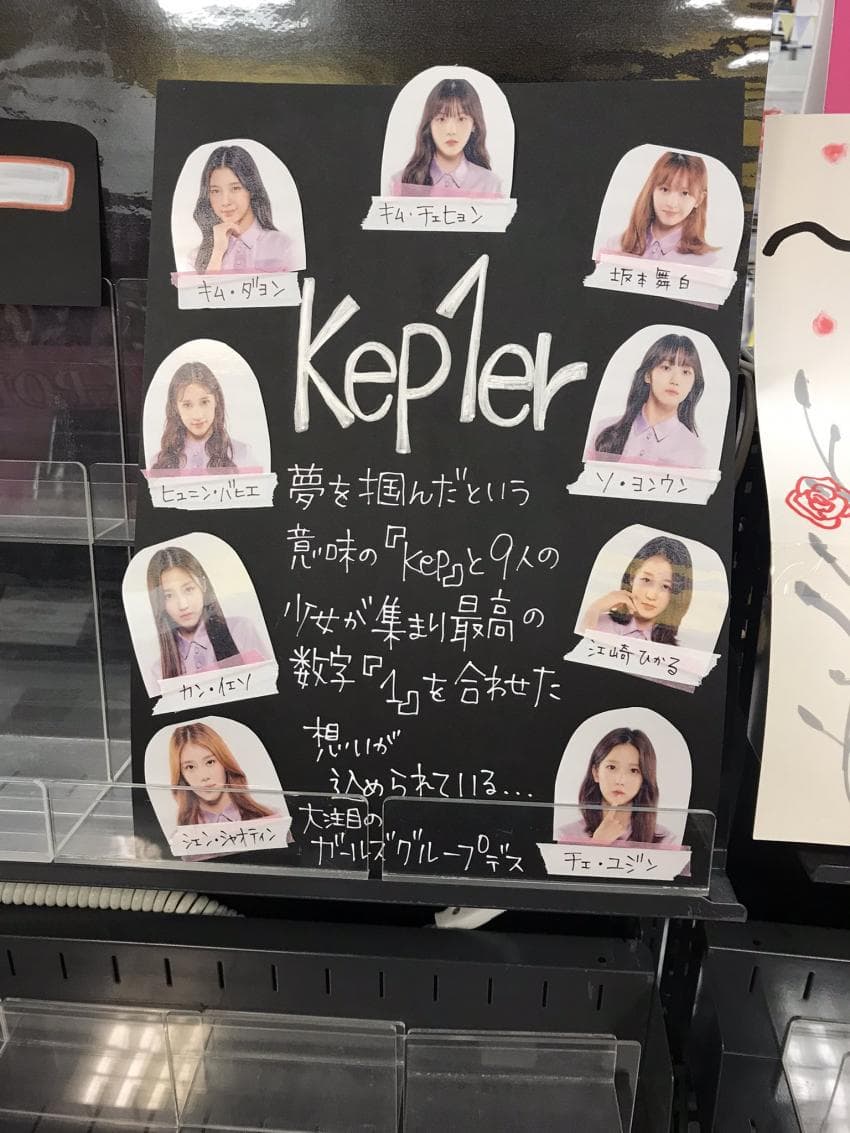 キム・チェヒョン
キム・ダヨン
坂本舞白
Kep1er
ヒュニン・バヒエ
ソ・ヨンウン
夢を掴んだという
意味の『Kep』と9人の
少女が集まり最高の
数字『1』を合わせた
想いが
込められている...
大注目の
ガールズグループデス
カン・イェソ
江崎ひかる
シェン・シャオティン
チェ・ユジン